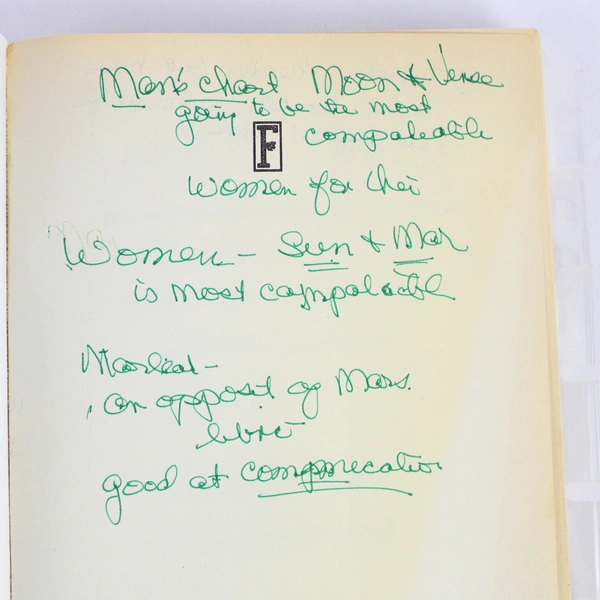 Man's chart Moon & Venae
going to be the most
F
compaleable
women for his
Women - Sun & Mar
is most compalactbl
on opposit of Mars.
good at commnecation